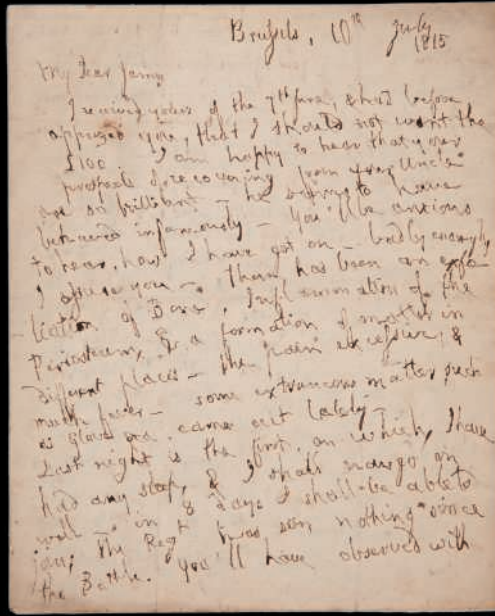 Brussels, 10th July
1815
My Dear James
I received yours of the 7th June, & had before
apprized you, that I should not want the
£100. I am happy to hear that your
prospects of recovering from your Uncle
are so brilliant - he seems to have
behaved infamously - You'll be anxious
to hear, how I have got on - badly enough,
I assure you - There has been an exfo
liation of Bone, Inflammation of the
Periosteum, & a formation of matter in
different places - the pain excessive, &
much fever - some extraneous matter such
as Glove &ca. came out lately -
Last night is the first, on which, I have
had any sleep, & I shall now go on
well - in 8 days I shall be able to
join; the Regt has seen nothing since
the Battle. You'll have observed with